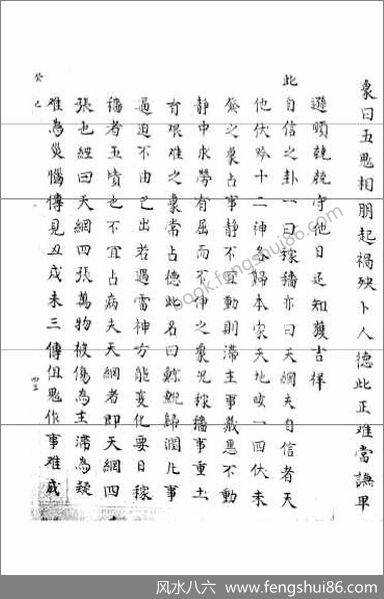 象曰五鬼相朋起禍殃卜人德此正難當謙卑
遜順兢兢守他日還知獲吉祥
此自信之卦一曰稼穡亦曰天網夫自信者天
他伏吟十二神各歸本家天地 一四伏未
發之象占事靜不宜動則滯主事藏慝不動
靜中求 有屈而不伸之象况稼穡事重土
有艱難之象常占德此名曰鯨鯢歸澗凡事
逼迫不由己出若遇雷神方能變化要曰稼
穡者五墳也不宜占病夫天網者即天網四
張也經曰天網四張萬物被傷為主滯為疑
难為災惱傳見丑戌未三傳俱鬼作事难成
癸己
四五
book.fengshui86.com
风水八六 www.fengshui86.com